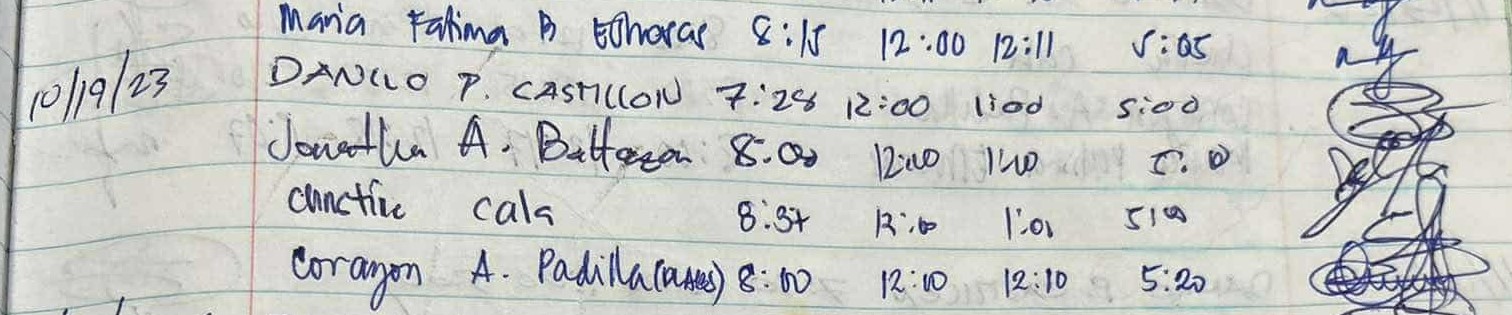 Maria Fatima B 8:15 12:00 12:11 5:05
10/19/23 DANILO P. CASTILLON 7:28 12:00 1:00 5:00
Jonathan A. 8:00 12:00 1:00 5:00
Cala 12:00 1:01
Corazon A. Padilla 8:00 12:10 12:10 5:20